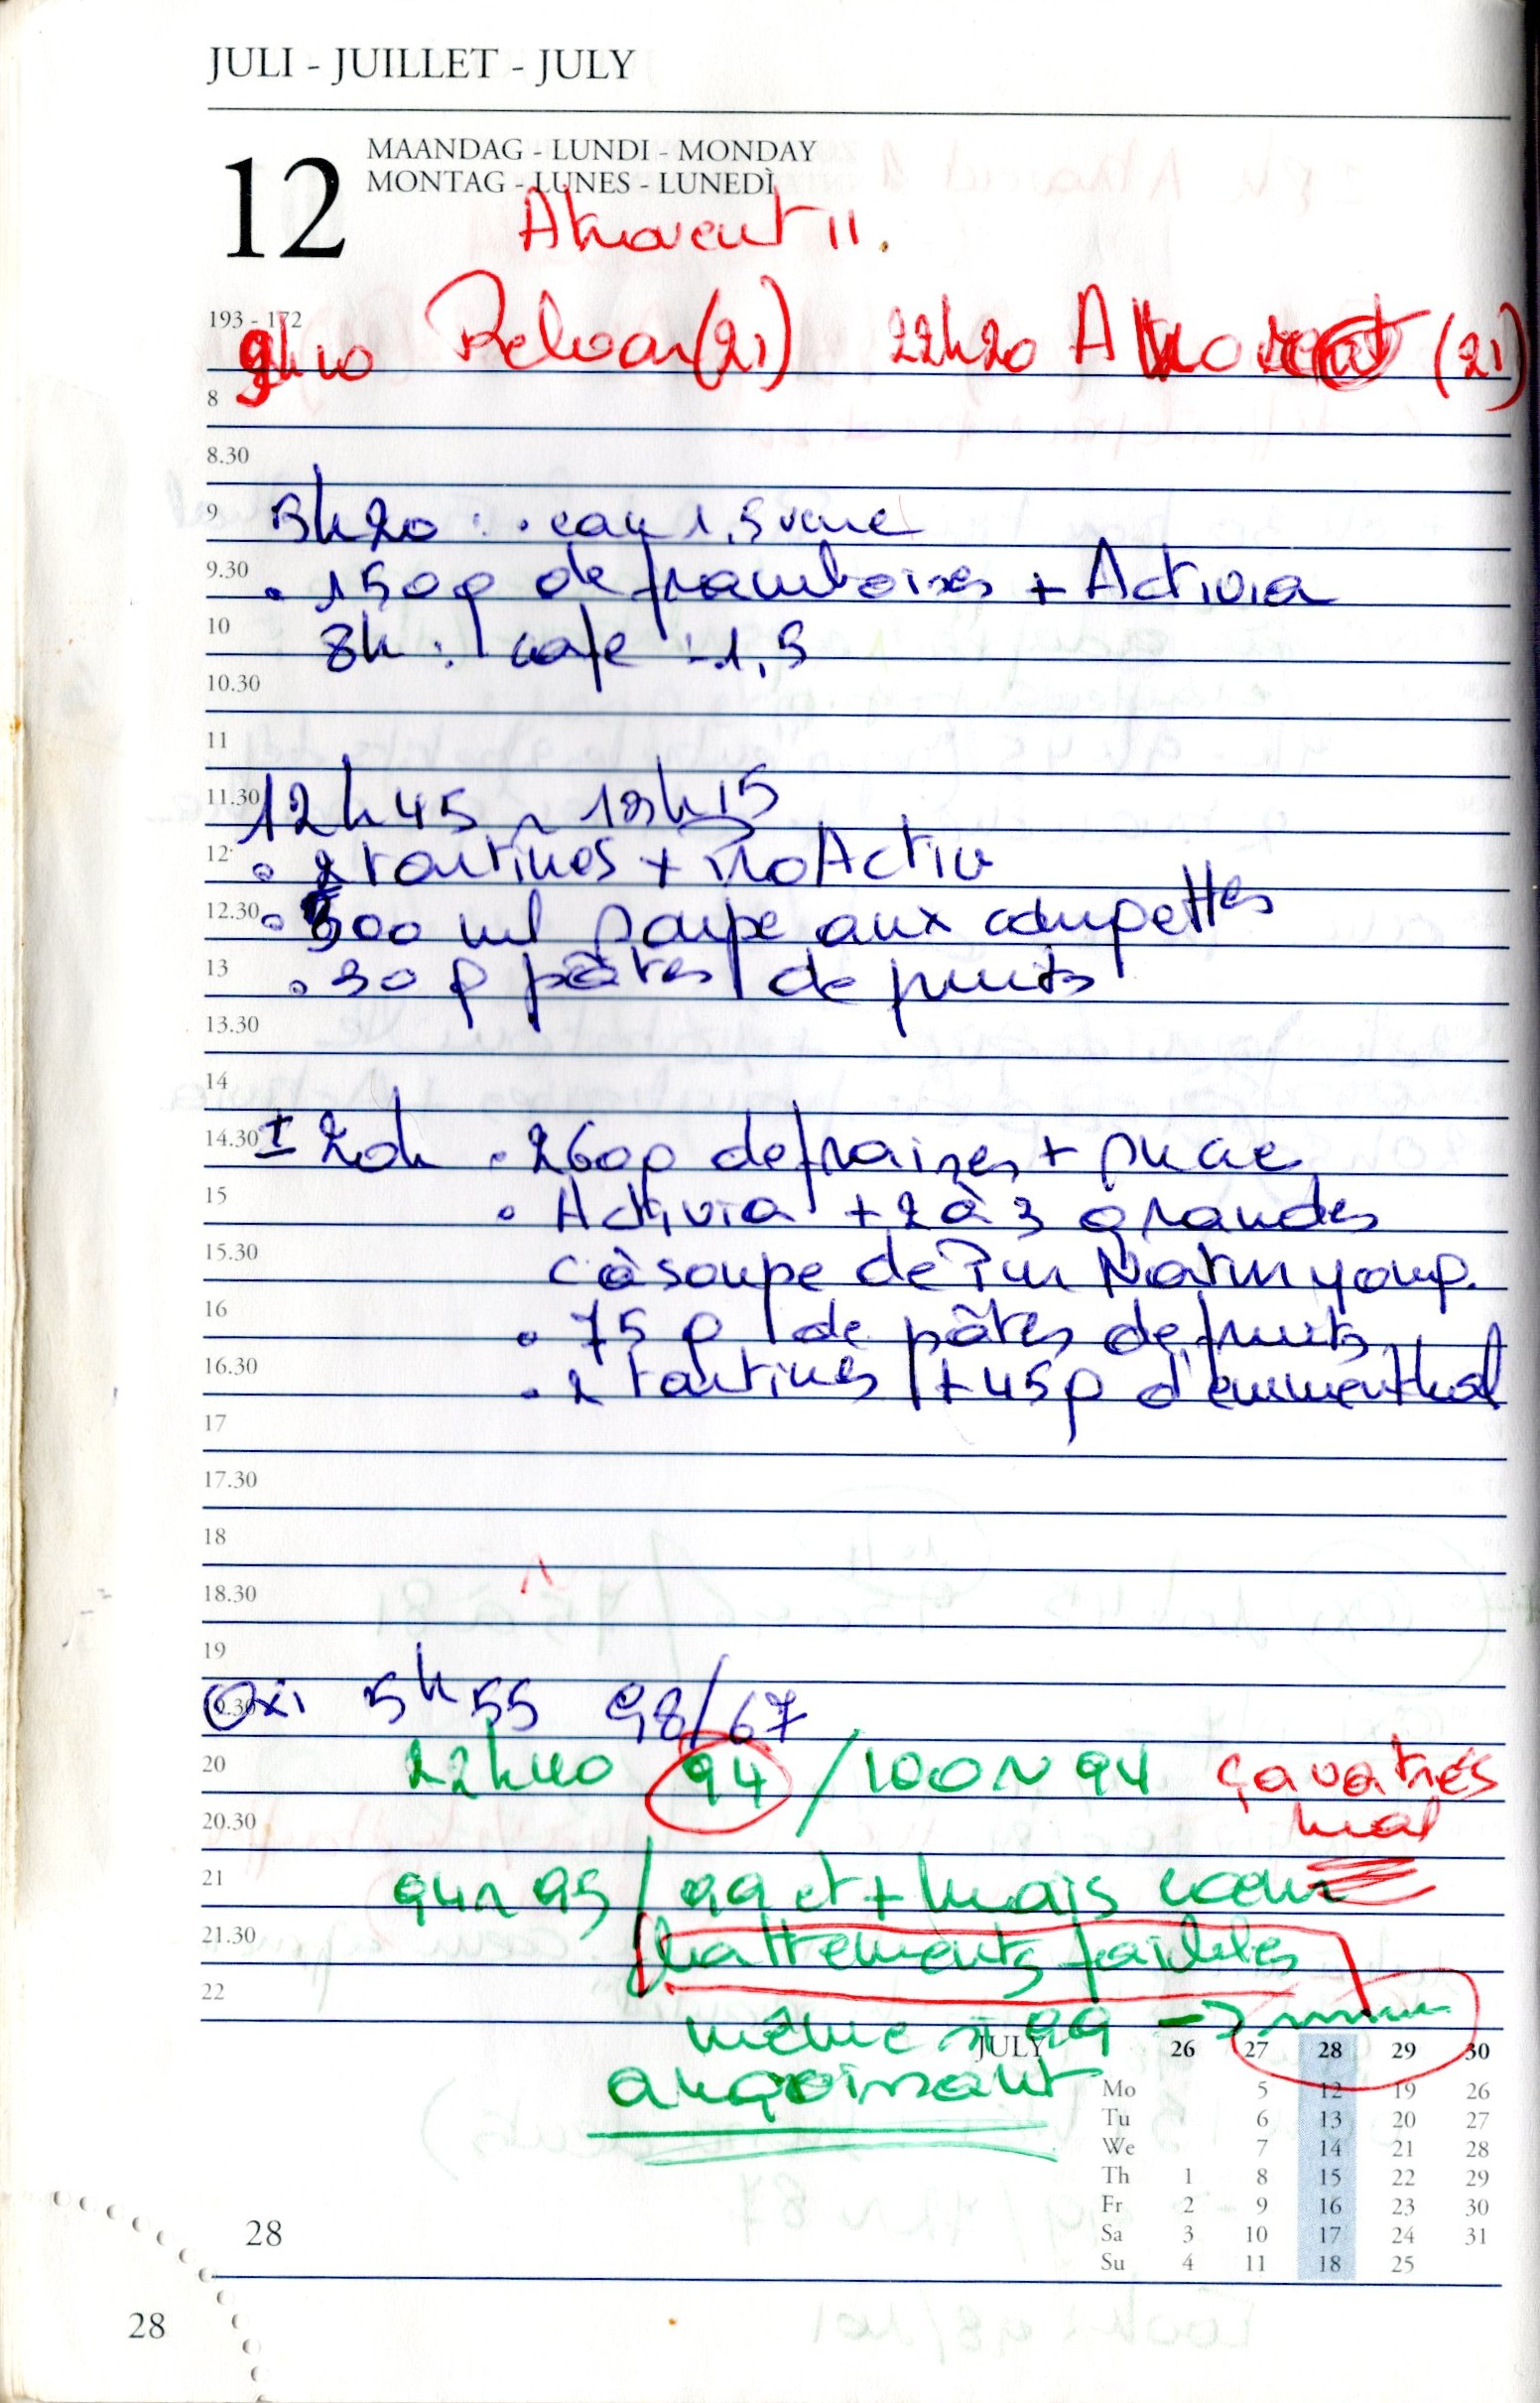 JULI - JUILLET - JULY
12
MAANDAG - LUNDI - MONDAY
MONTAG - LUNES - LUNEDÌ
Atrovent 11.
193 - 172
9h10 Relvar (21) 22h20 Atrovent (21)
8
8.30
9 5h20 : • eau 1,5 verre
9.30 • 150g de framboises + Activia
10 8h : café : 1,5
10.30
11
11.30 12h45 ~ 13h15
12 • 2 tartines + ProActiv
12.30 • 500 ml soupe aux courgettes
13 • 30 g pâtes de fruits
13.30
14
14.30 ± 20h • 260g de fraises + sucre
15 • Activia + 2 à 3 grandes
15.30 c à soupe de Pur Natur yaourt
16 • 75 g de pâtes de fruits
16.30 • 2 tartines + 45g d'emmenthal
17
17.30
18
18.30
19
19.30 Oxi 5h55 98/67
20 22h40 94 / 100 ~ 94 ça va très
20.30 mal
21 94 ~ 95 / 99 et + mais cœur
21.30 battements faibles
22
même si 99 →
angoissant
JULY 26 27 28 29 30
Mo 5 12 19 26
Tu 6 13 20 27
We 7 14 21 28
Th 1 8 15 22 29
Fr 2 9 16 23 30
Sa 3 10 17 24 31
Su 4 11 18 25
28
28